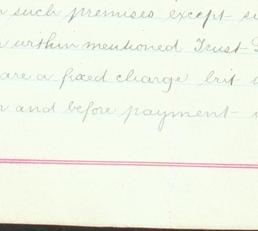 such premises except
within mentioned Trust
are a fixed charge but
and before payment